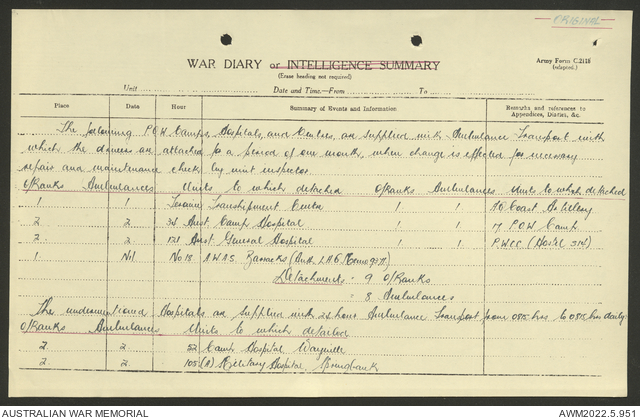 ORIGINAL
WAR DIARY or INTELLIGENCE SUMMARY
(Erase heading not required)
Army Form C.2118
(adapted.)
Unit Date and Time—From To
Place Date Hour Summary of Events and Information Remarks and references to Appendices, Diaries, &c.
The following P.O.W Camps, Hospitals, and Centres, are supplied with Ambulance Transport with
which the drivers are attached for a period of one month, when change is effected for necessary
repair and maintenance check by unit inspector.
O/Ranks Ambulances Units to which detached O/Ranks Ambulances Units to which detached
1 1 Transhipment Centre 1 1 Coast Artillery
2 2 Aust Camp Hospital 1 1 17 P.O.W Camp
2 2 121 Aust General Hospital 1 1 P.W.C.C.
1 Nil No 18 A.W.A.S. Barracks
Detachments - 9 O/Ranks
8 Ambulances
The undermentioned Hospitals are supplied with 24 hour Ambulance Transport from 0815 hrs to 0815 hrs daily
O/Ranks Ambulances Units to which detached
2 2 52 Camp Hospital Wayville
2 2 105 (A) Military Hospital, Springbank
AUSTRALIAN WAR MEMORIAL
AWM2022.5.951